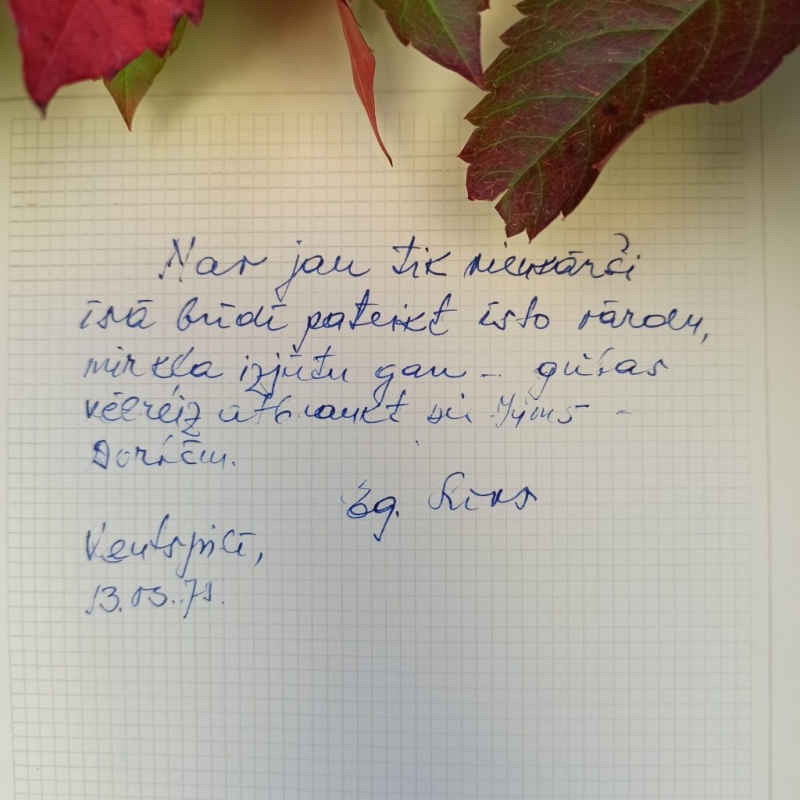 Nav jau tik vienkārši
īsā brīdī pateikt īsto vārdu,
mirkļa izjūtu gan – gribas
vēlreiz atbraukt pie Jums –
Ventspilī,
13.03.71.